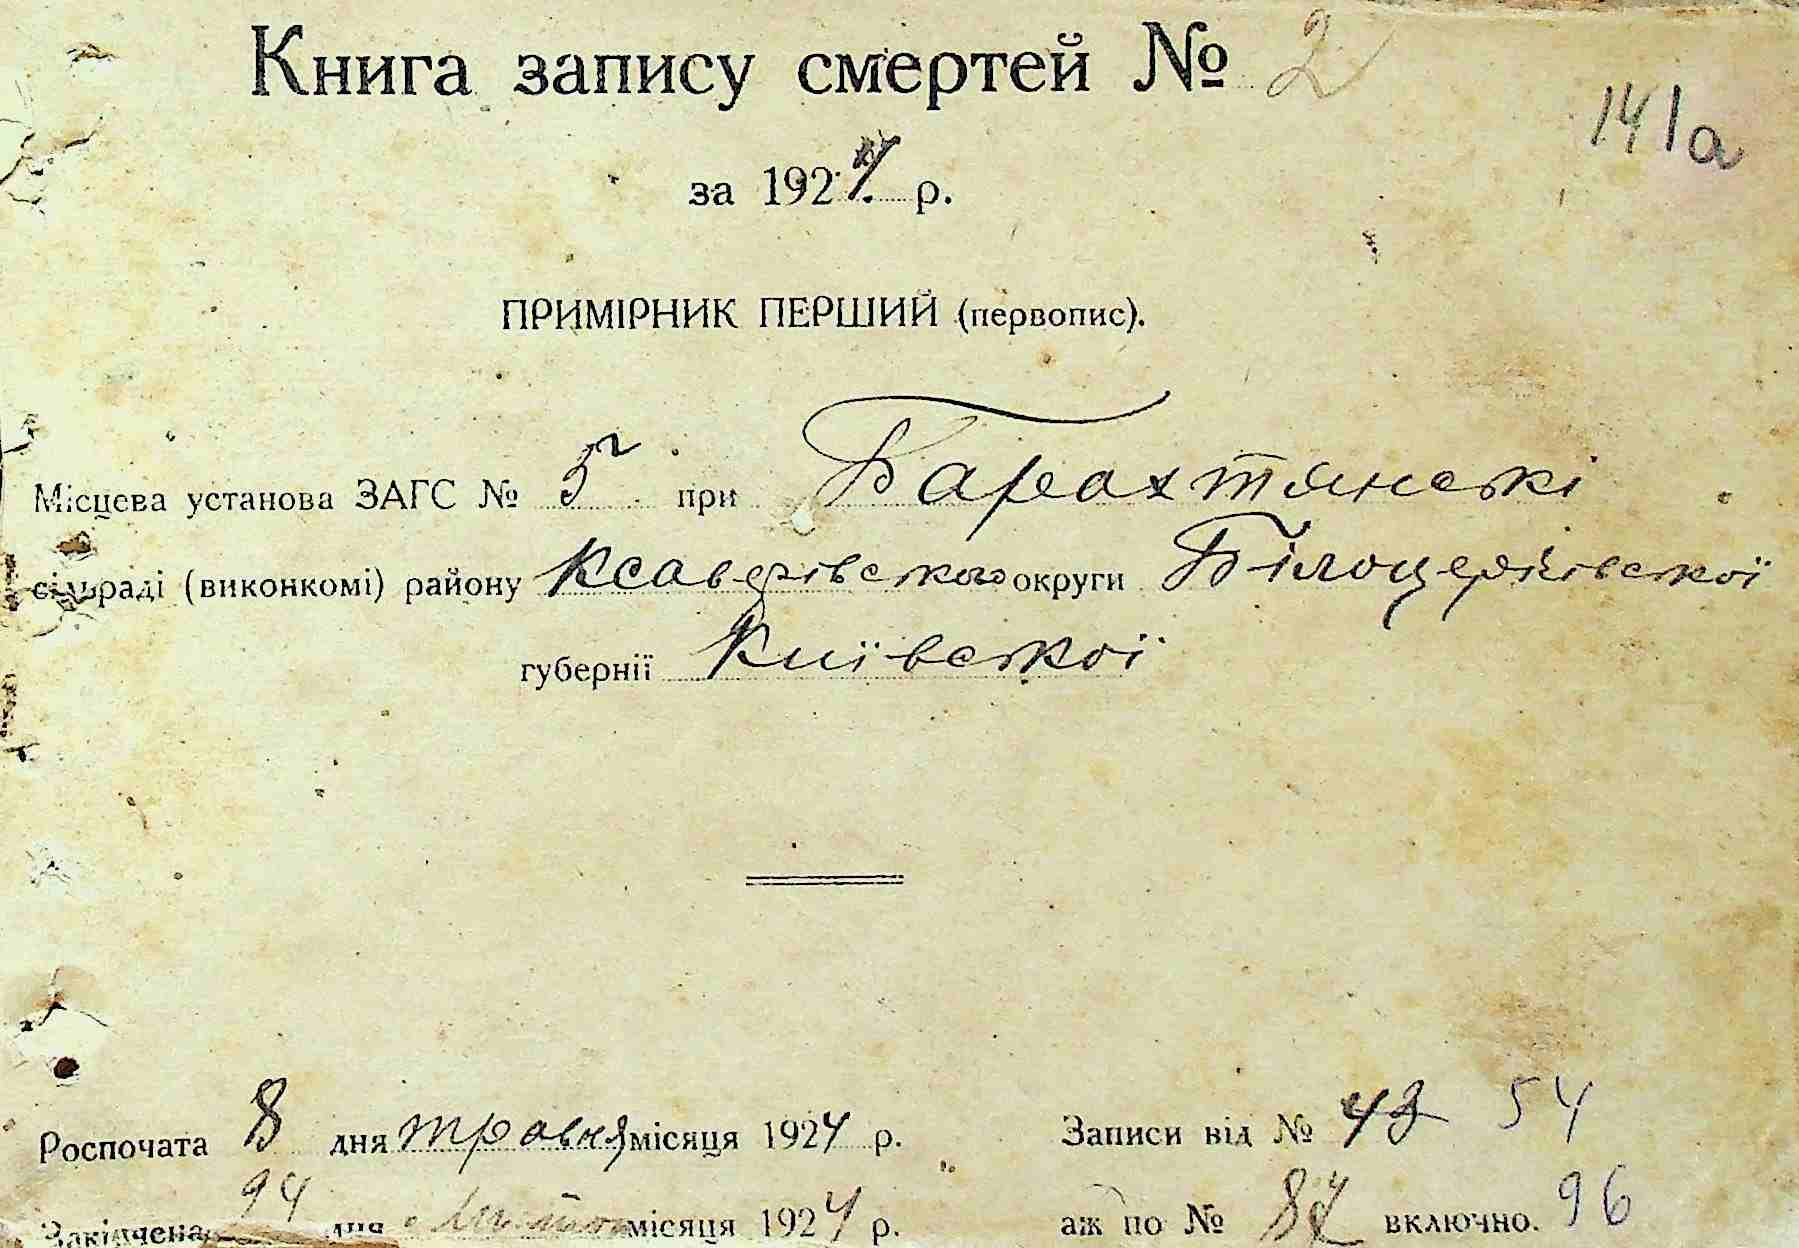 Книга запису смертей № 2
141а
за 1924 р.
ПРИМІРНИК ПЕРШИЙ (первопис).
Місцева установа ЗАГС № 5 при Барахтянські
сільраді (виконкомі) району Ксаверівського округи Білоцерківської
губернії Київської
Розпочата 8 дня травня місяця 1924 р. Записи від № 43 54
Закінчена дня місяця 1924 р. аж по № 87 включно. 96